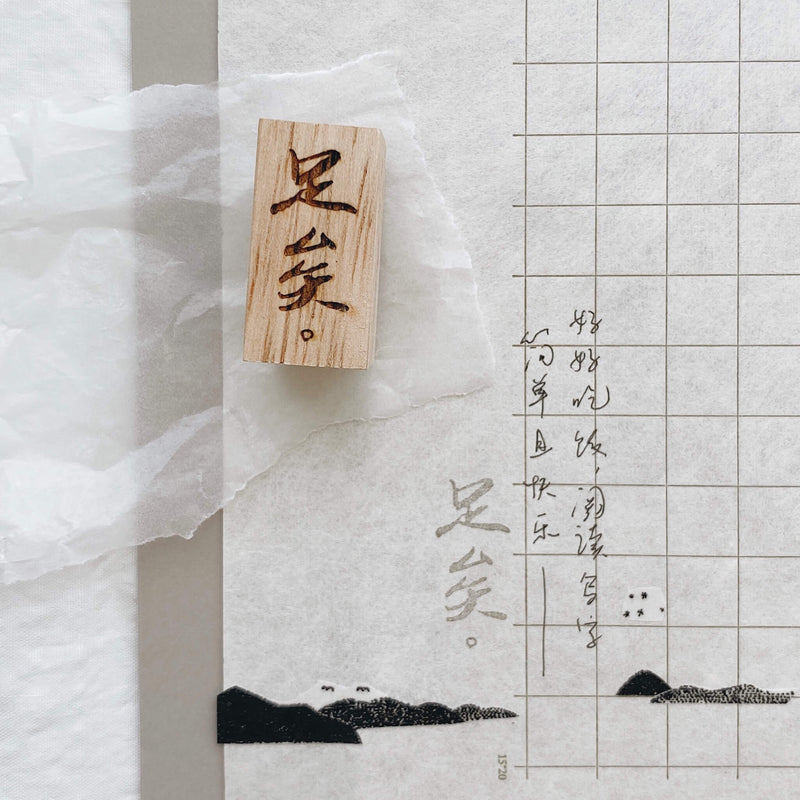 足矣。
好好吃饭,阅读写字
简单且快乐——
足矣。
15*20